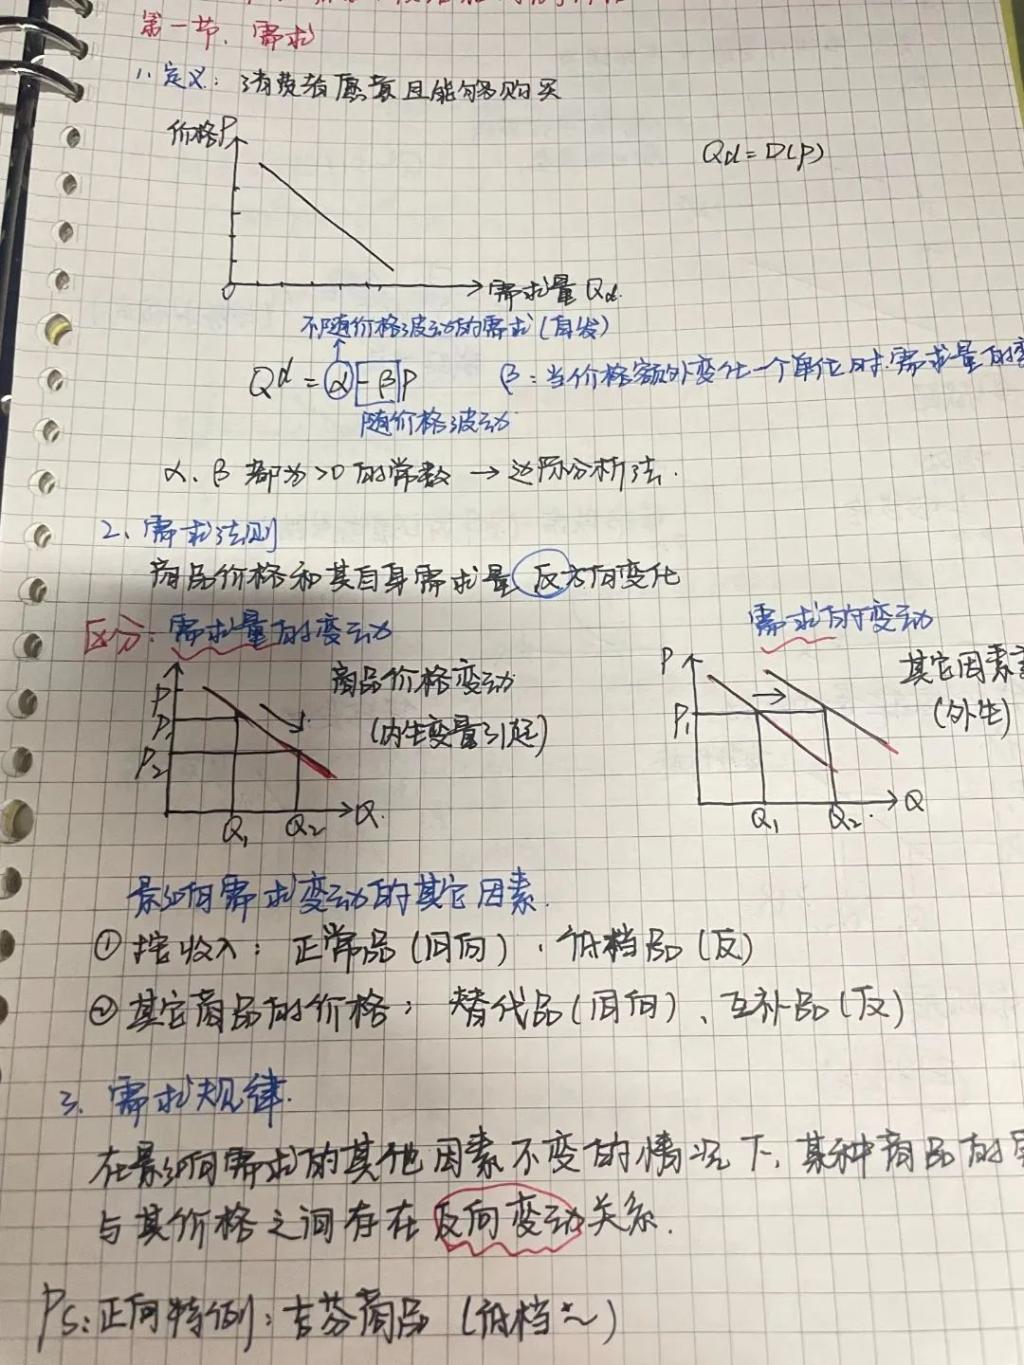 第一节、需求
1、定义：消费者愿意且能够购买
价格P
Qd=D(P)
O
需求量 Qd.
不随价格波动的需求(自发)
Q^d = α - βP
β：当价格额外变化一个单位时.需求量的变
随价格波动
α、β 都为>0 的常数 → 边际分析法.
2、需求法则
商品价格和其自身需求量反方向变化
区分：需求量的变动
需求的变动
商品价格变动
(内生变量引起)
P
P1
P2
Q1
Q2
Q
其它因素
(外生)
P
P1
Q1
Q2
Q
影响需求变动的其它因素.
① 按收入：正常品(同向)、低档品(反)
② 其它商品的价格：替代品(同向)、互补品(反)
3、需求规律.
在影响需求的其他因素不变的情况下,某种商品的
与其价格之间存在反向变动关系.
Ps:正向特例：吉芬商品 (低档~)